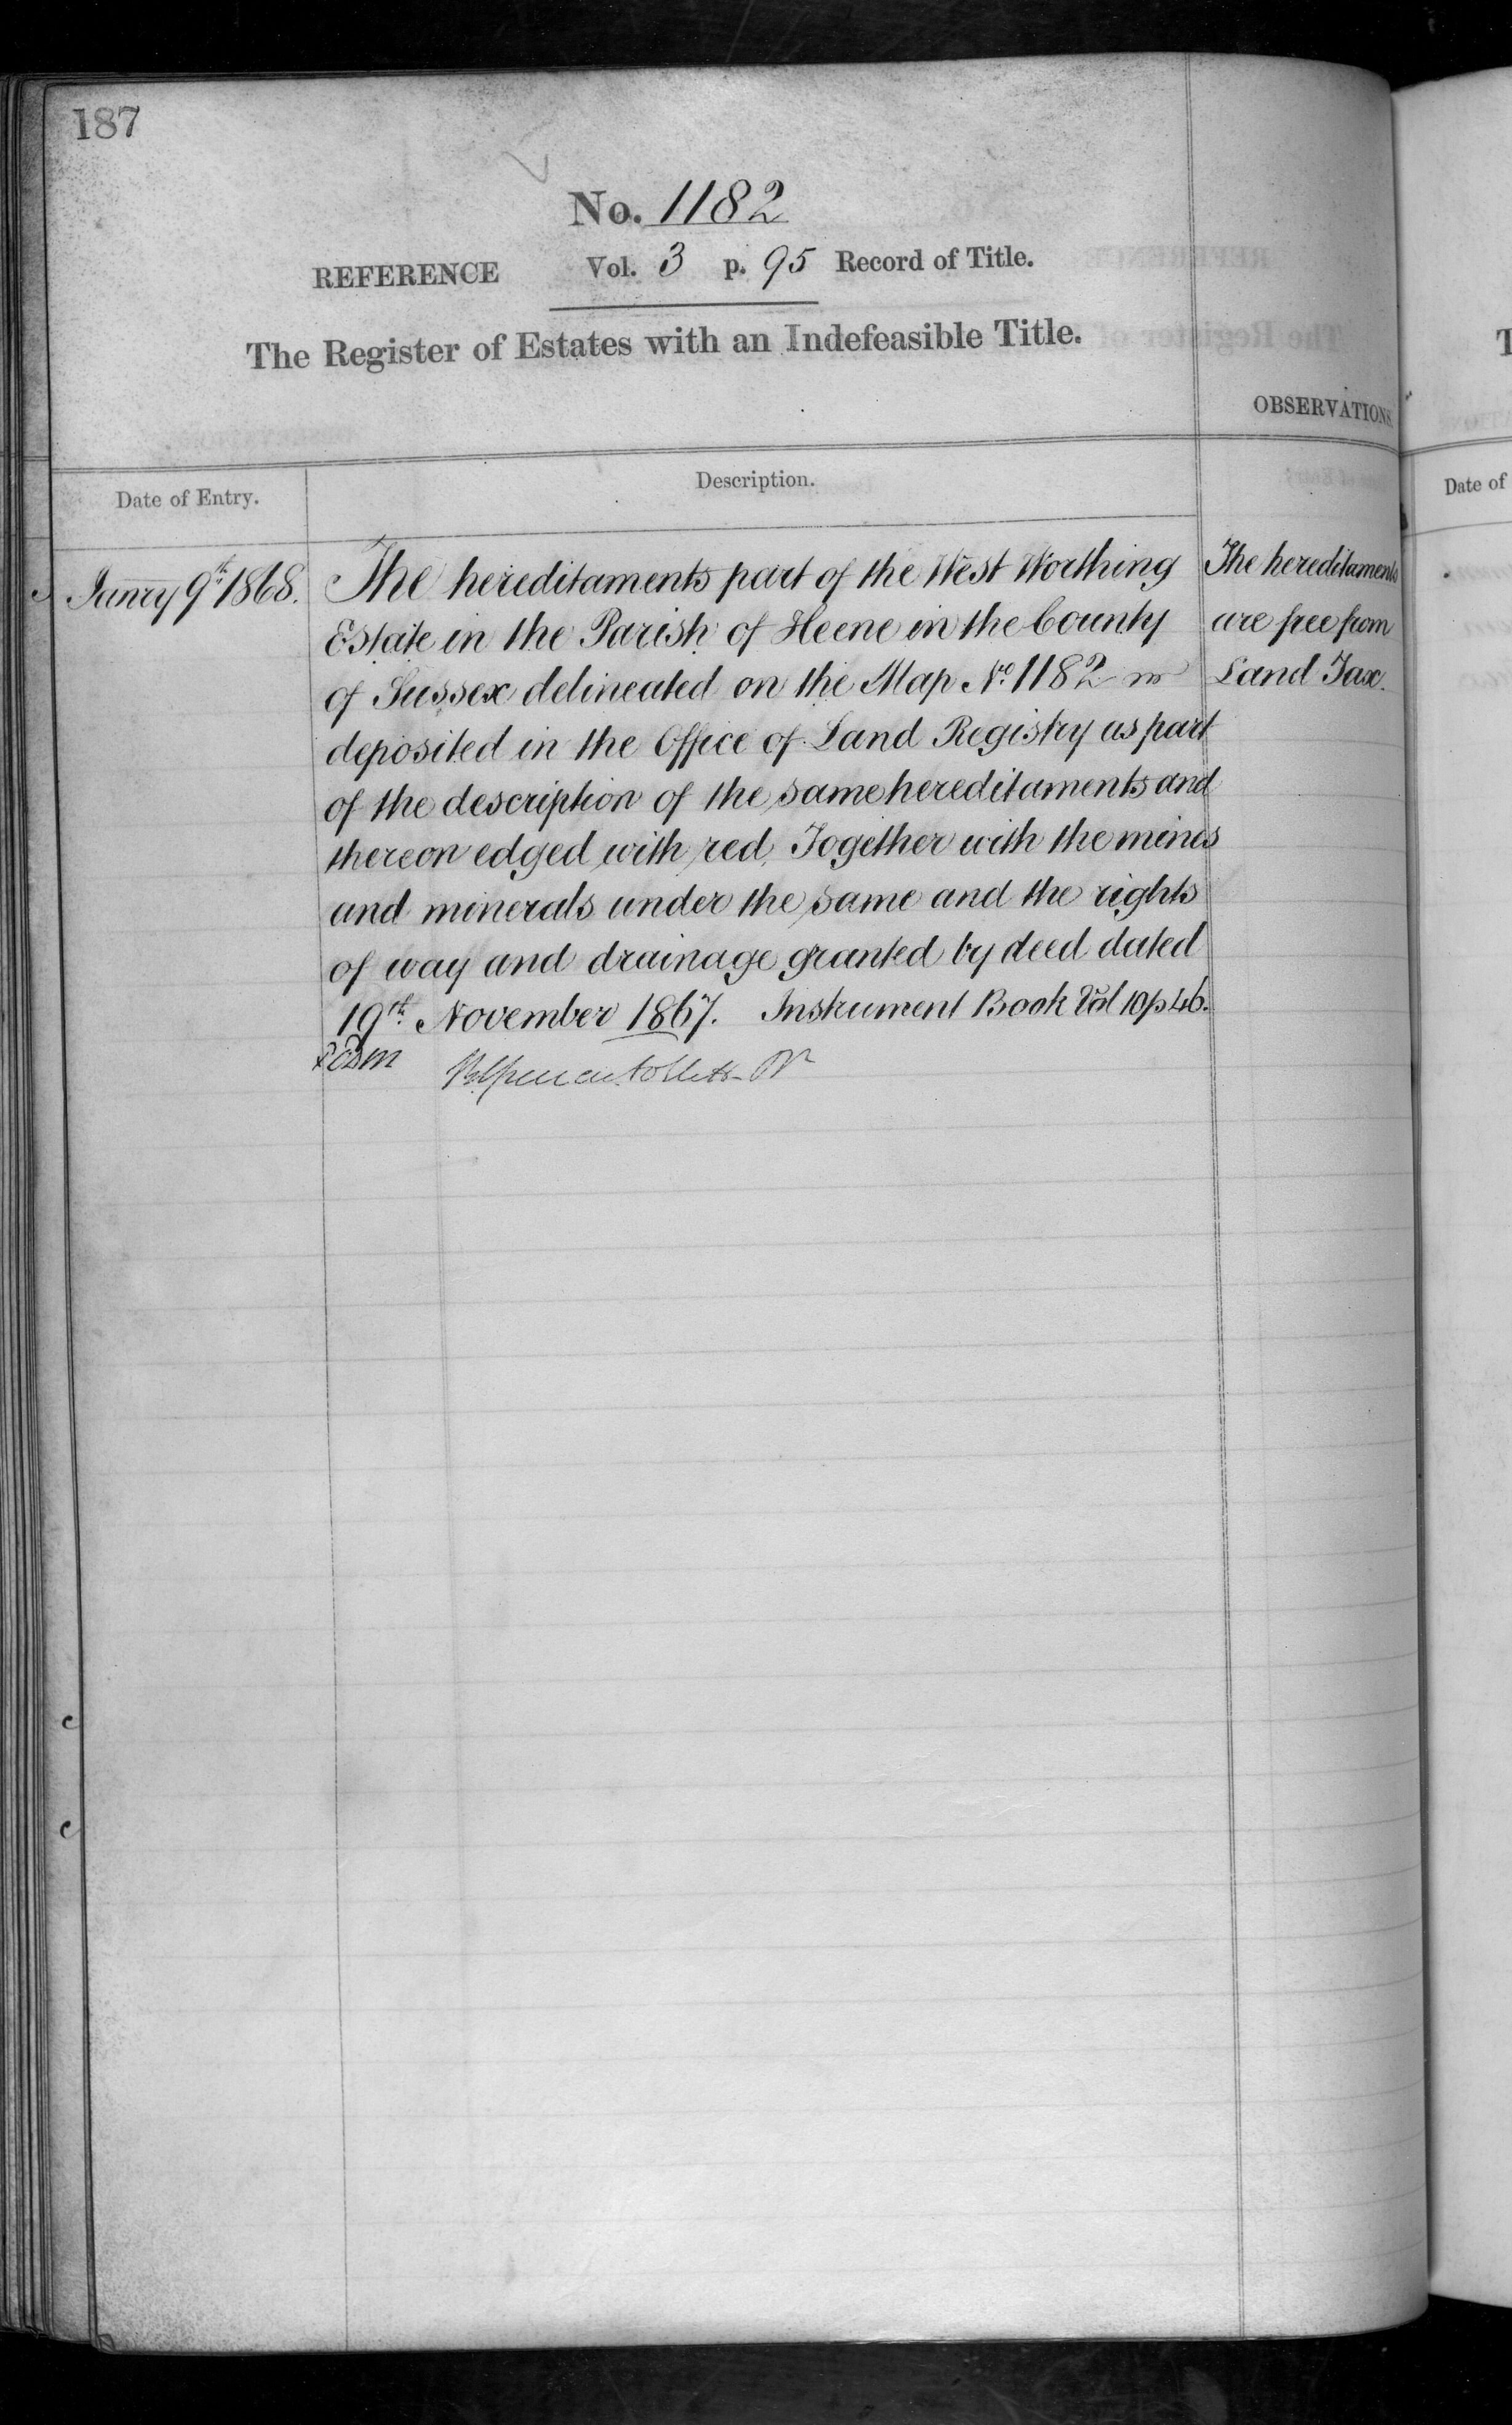 187
No. 1182
REFERENCE Vol. 3 p. 95 Record of Title.
The Register of Estates with an Indefeasible Title.
OBSERVATIONS.
Date of Entry.
Description.
Date of
Janry 9th 1868.
The hereditaments part of the West Worthing
Estate in the Parish of Heene in the County
of Sussex delineated on the Map No. 1182
deposited in the Office of Land Registry as part
of the description of the same hereditaments and
thereon edged with red, Together with the mines
and minerals under the same and the rights
of way and drainage granted by deed dated
19th November 1867. Instrument Book Vol 10 p 46.
The hereditaments
are free from
Land Tax.